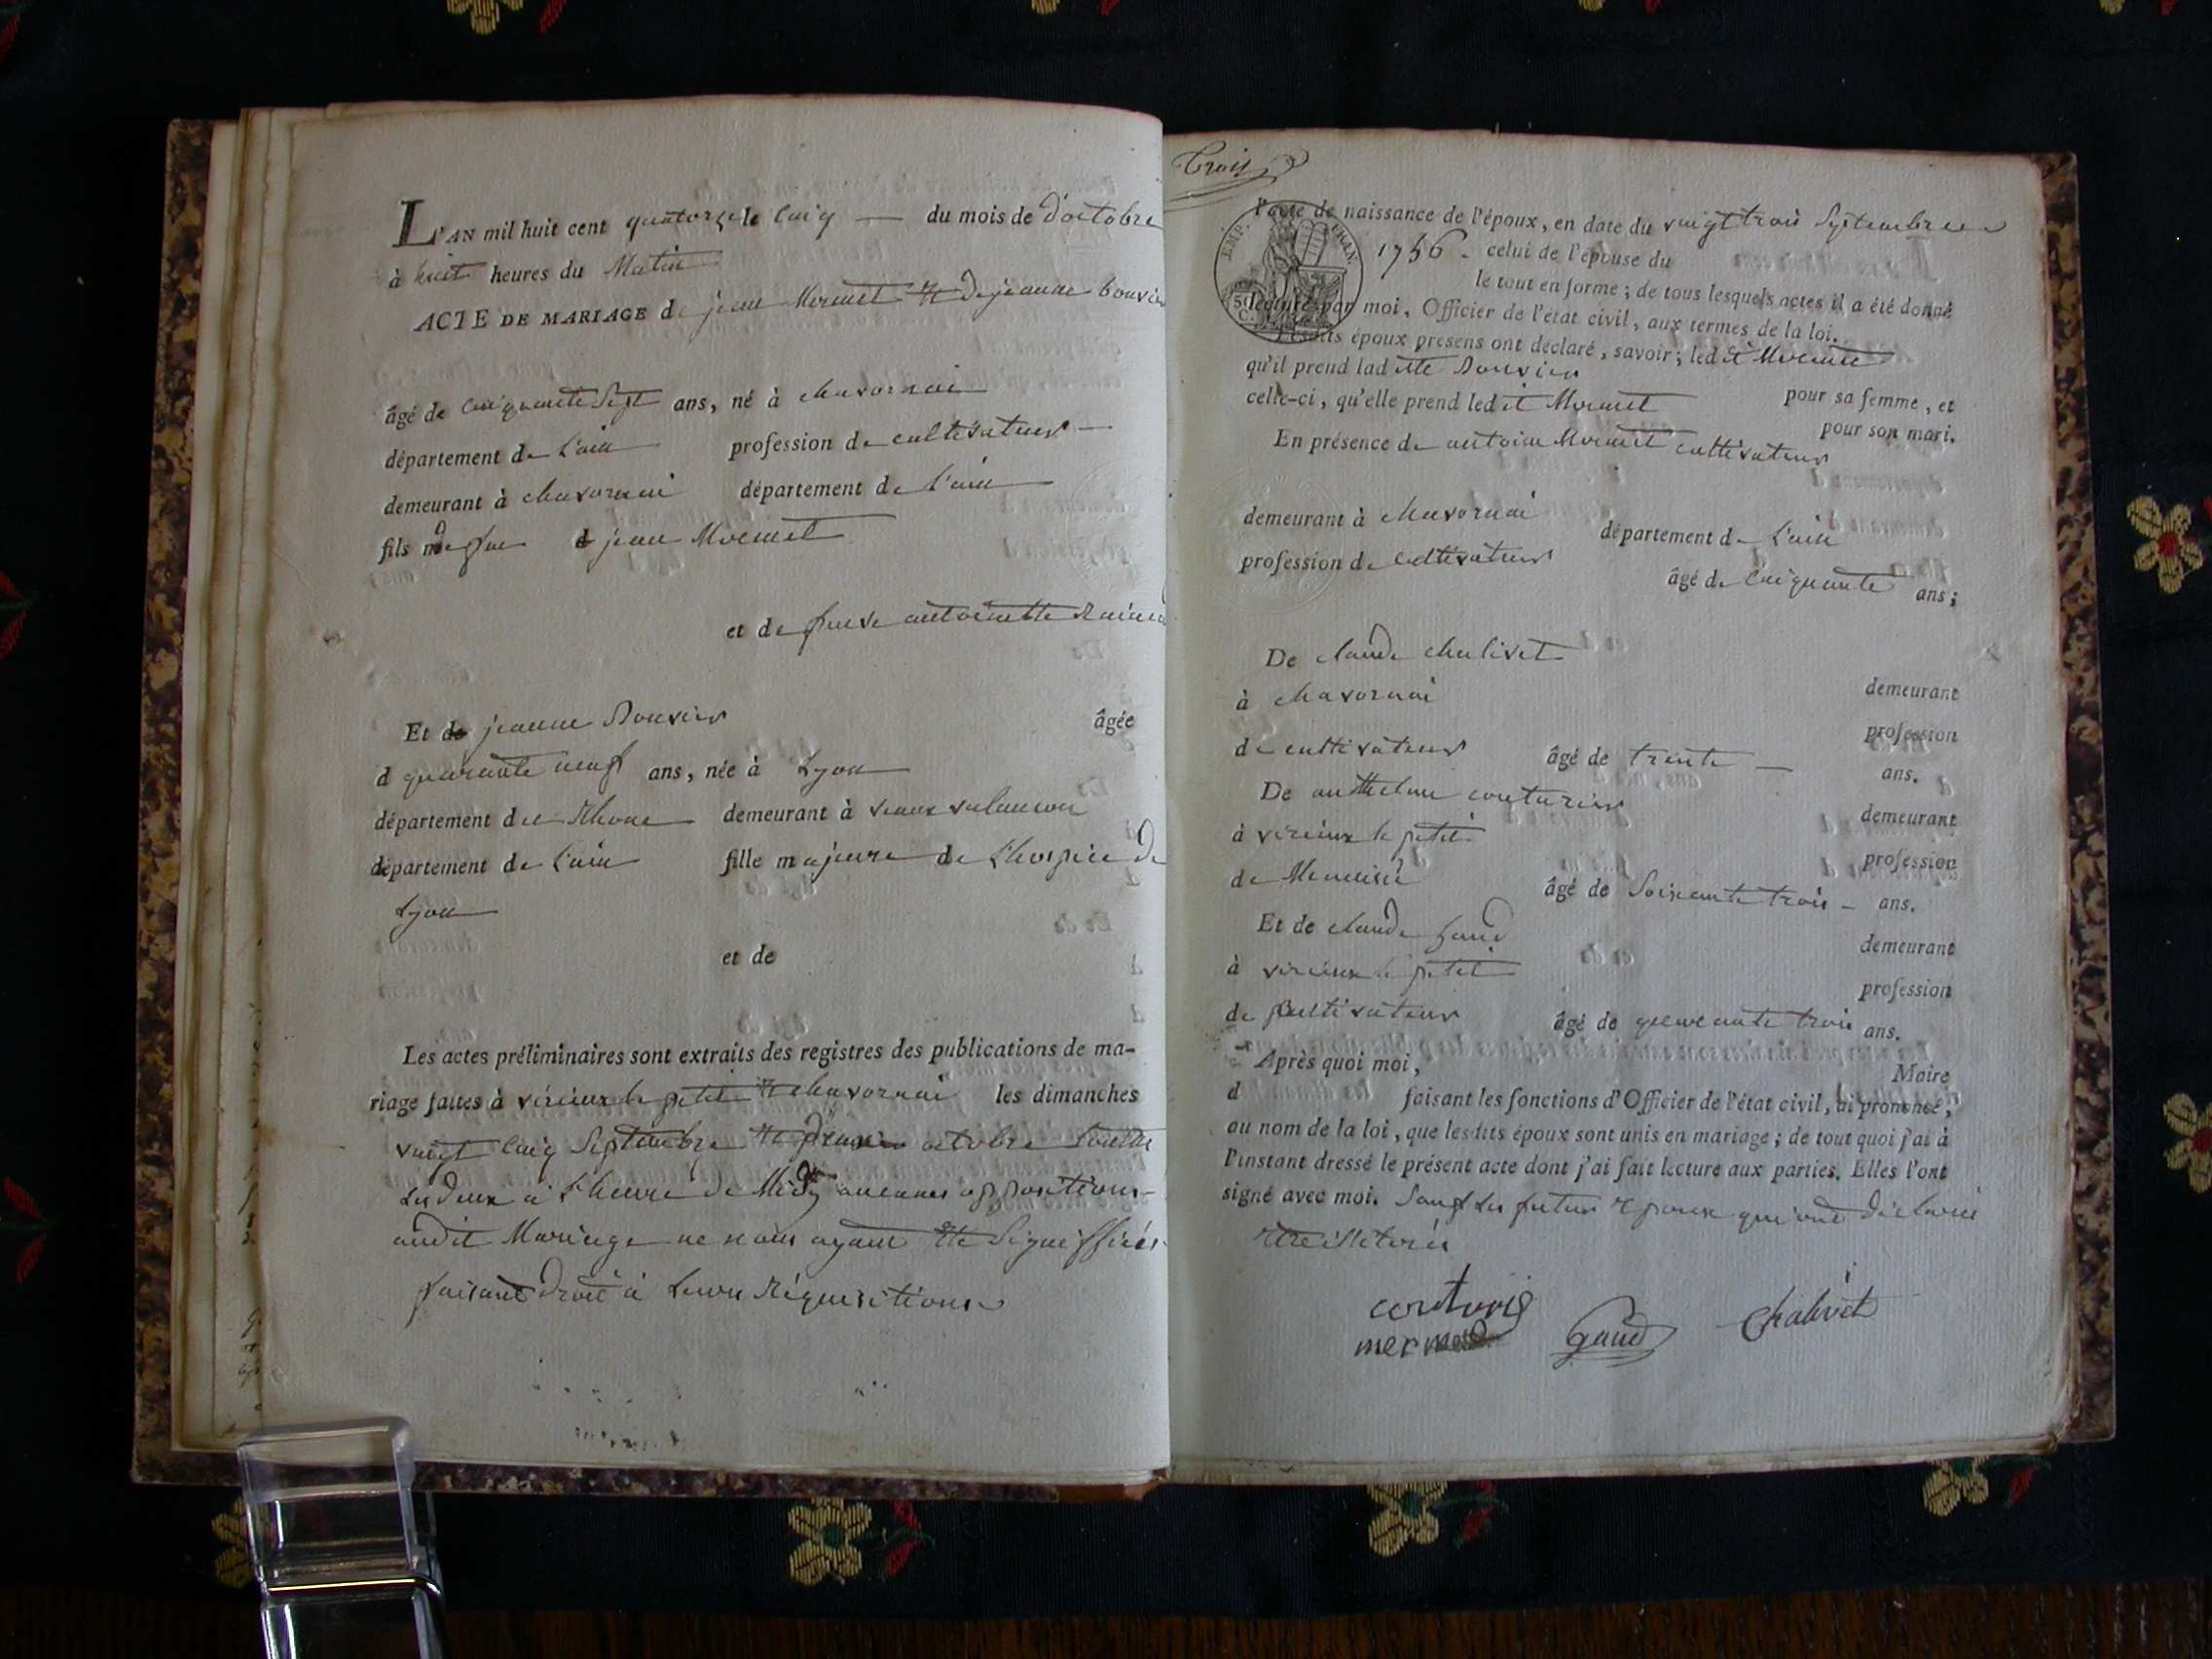 L'AN mil huit cent quatorze le cinq — du mois de d'octobre
à huit heures du Matin
ACTE DE MARIAGE de jean Mermet et de jeanne bouvier
âgé de cinquante sept ans, né à chavornai
département de l'ain profession de cultivateur —
demeurant à chavornai département de l'ain
fils de feu jean Mermet
et de feue antoinette
Et jeanne Bouvier âgée
d quarante neuf ans, née à Lyon
département du Rhone demeurant à
département de l'ain fille majeure de l'hospice de
Lyon
et de
Les actes préliminaires sont extraits des registres des publications de ma-
riage faites à virieux le petit et chavornai les dimanches
vingt cinq Septembre et octobre
Les deux à l'heure de Midy aucunes oppositions
audit Mariage ne nous ayant été signiffiées
faisant droit à Leurs Réquisitions
Trois
l'acte de naissance de l'époux, en date du vingt trois Septembre
1756. celui de l'épouse du
le tout en forme; de tous lesquels actes il a été donné
lecture par moi, Officier de l'état civil, aux termes de la loi.
Lesdits époux présens ont déclaré, savoir; led it Mermet
qu'il prend lad itte Bouvier pour sa femme, et
celle-ci, qu'elle prend led it Mermet pour son mari.
En présence de antoine Mermet cultivateur
demeurant à chavornai département de l'ain
profession de cultivateur âgé de cinquante ans;
De claude chalivet demeurant
à chavornai profession
de cultivateur âgé de trente — ans.
De anthelme couturier demeurant
à virieux le petit profession
de Menuisié âgé de soixante trois — ans.
Et de claude gaud demeurant
à virieux le petit profession
de cultivateur âgé de quarante trois ans.
Après quoi moi, Maire
d faisant les fonctions d'Officier de l'état civil, ai prononcé,
au nom de la loi, que lesdits époux sont unis en mariage; de tout quoi j'ai à
l'instant dressé le présent acte dont j'ai fait lecture aux parties. Elles l'ont
signé avec moi. Sauf les futurs epoux qui ont déclaré
etre illetorés
EMP. FRAN
50 C.
couturié
mermet Gaud Chalivet